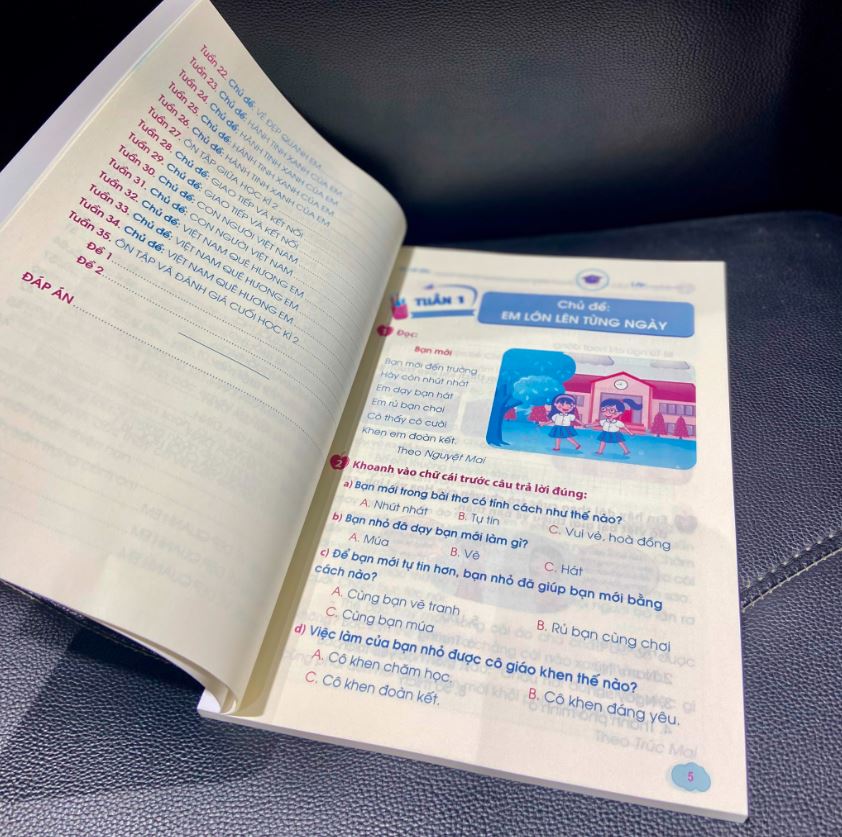 Tuần 22. Chủ đề: VẺ ĐẸP QUANH EM
Tuần 23. Chủ đề: HÀNH TINH XANH CỦA EM
Tuần 24. Chủ đề: HÀNH TINH XANH CỦA EM
Tuần 25. Chủ đề: HÀNH TINH XANH CỦA EM
Tuần 26. Chủ đề: HÀNH TINH XANH CỦA EM
Tuần 27. ÔN TẬP GIỮA HỌC KÌ 2
Tuần 28. Chủ đề: GIAO TIẾP VÀ KẾT NỐI
Tuần 29. Chủ đề: GIAO TIẾP VÀ KẾT NỐI
Tuần 30. Chủ đề: CON NGƯỜI VIỆT NAM
Tuần 31. Chủ đề: CON NGƯỜI VIỆT NAM
Tuần 32. Chủ đề: VIỆT NAM QUÊ HƯƠNG EM
Tuần 33. Chủ đề: VIỆT NAM QUÊ HƯƠNG EM
Tuần 34. Chủ đề: VIỆT NAM QUÊ HƯƠNG EM
Tuần 35. ÔN TẬP VÀ ĐÁNH GIÁ CUỐI HỌC KÌ 2
Đề 1
Đề 2
ĐÁP ÁN
TUẦN 1
Chủ đề:
EM LỚN LÊN TỪNG NGÀY
1 Đọc:
Bạn mới
Bạn mới đến trường
Hãy còn nhút nhát
Em dạy bạn hát
Em rủ bạn chơi
Cô thấy cô cười
Khen em đoàn kết.
Theo Nguyệt Mai
2 Khoanh vào chữ cái trước câu trả lời đúng:
a) Bạn mới trong bài thơ có tính cách như thế nào?
A. Nhút nhát B. Tự tin C. Vui vẻ, hoà đồng
b) Bạn nhỏ đã dạy bạn mới làm gì?
A. Múa B. Vẽ C. Hát
c) Để bạn mới tự tin hơn, bạn nhỏ đã giúp bạn mới bằng
cách nào?
A. Cùng bạn vẽ tranh B. Rủ bạn cùng chơi
C. Cùng bạn múa
d) Việc làm của bạn nhỏ được cô giáo khen thế nào?
A. Cô khen chăm học. B. Cô khen đáng yêu.
C. Cô khen đoàn kết.
Theo Trúc Mai
5